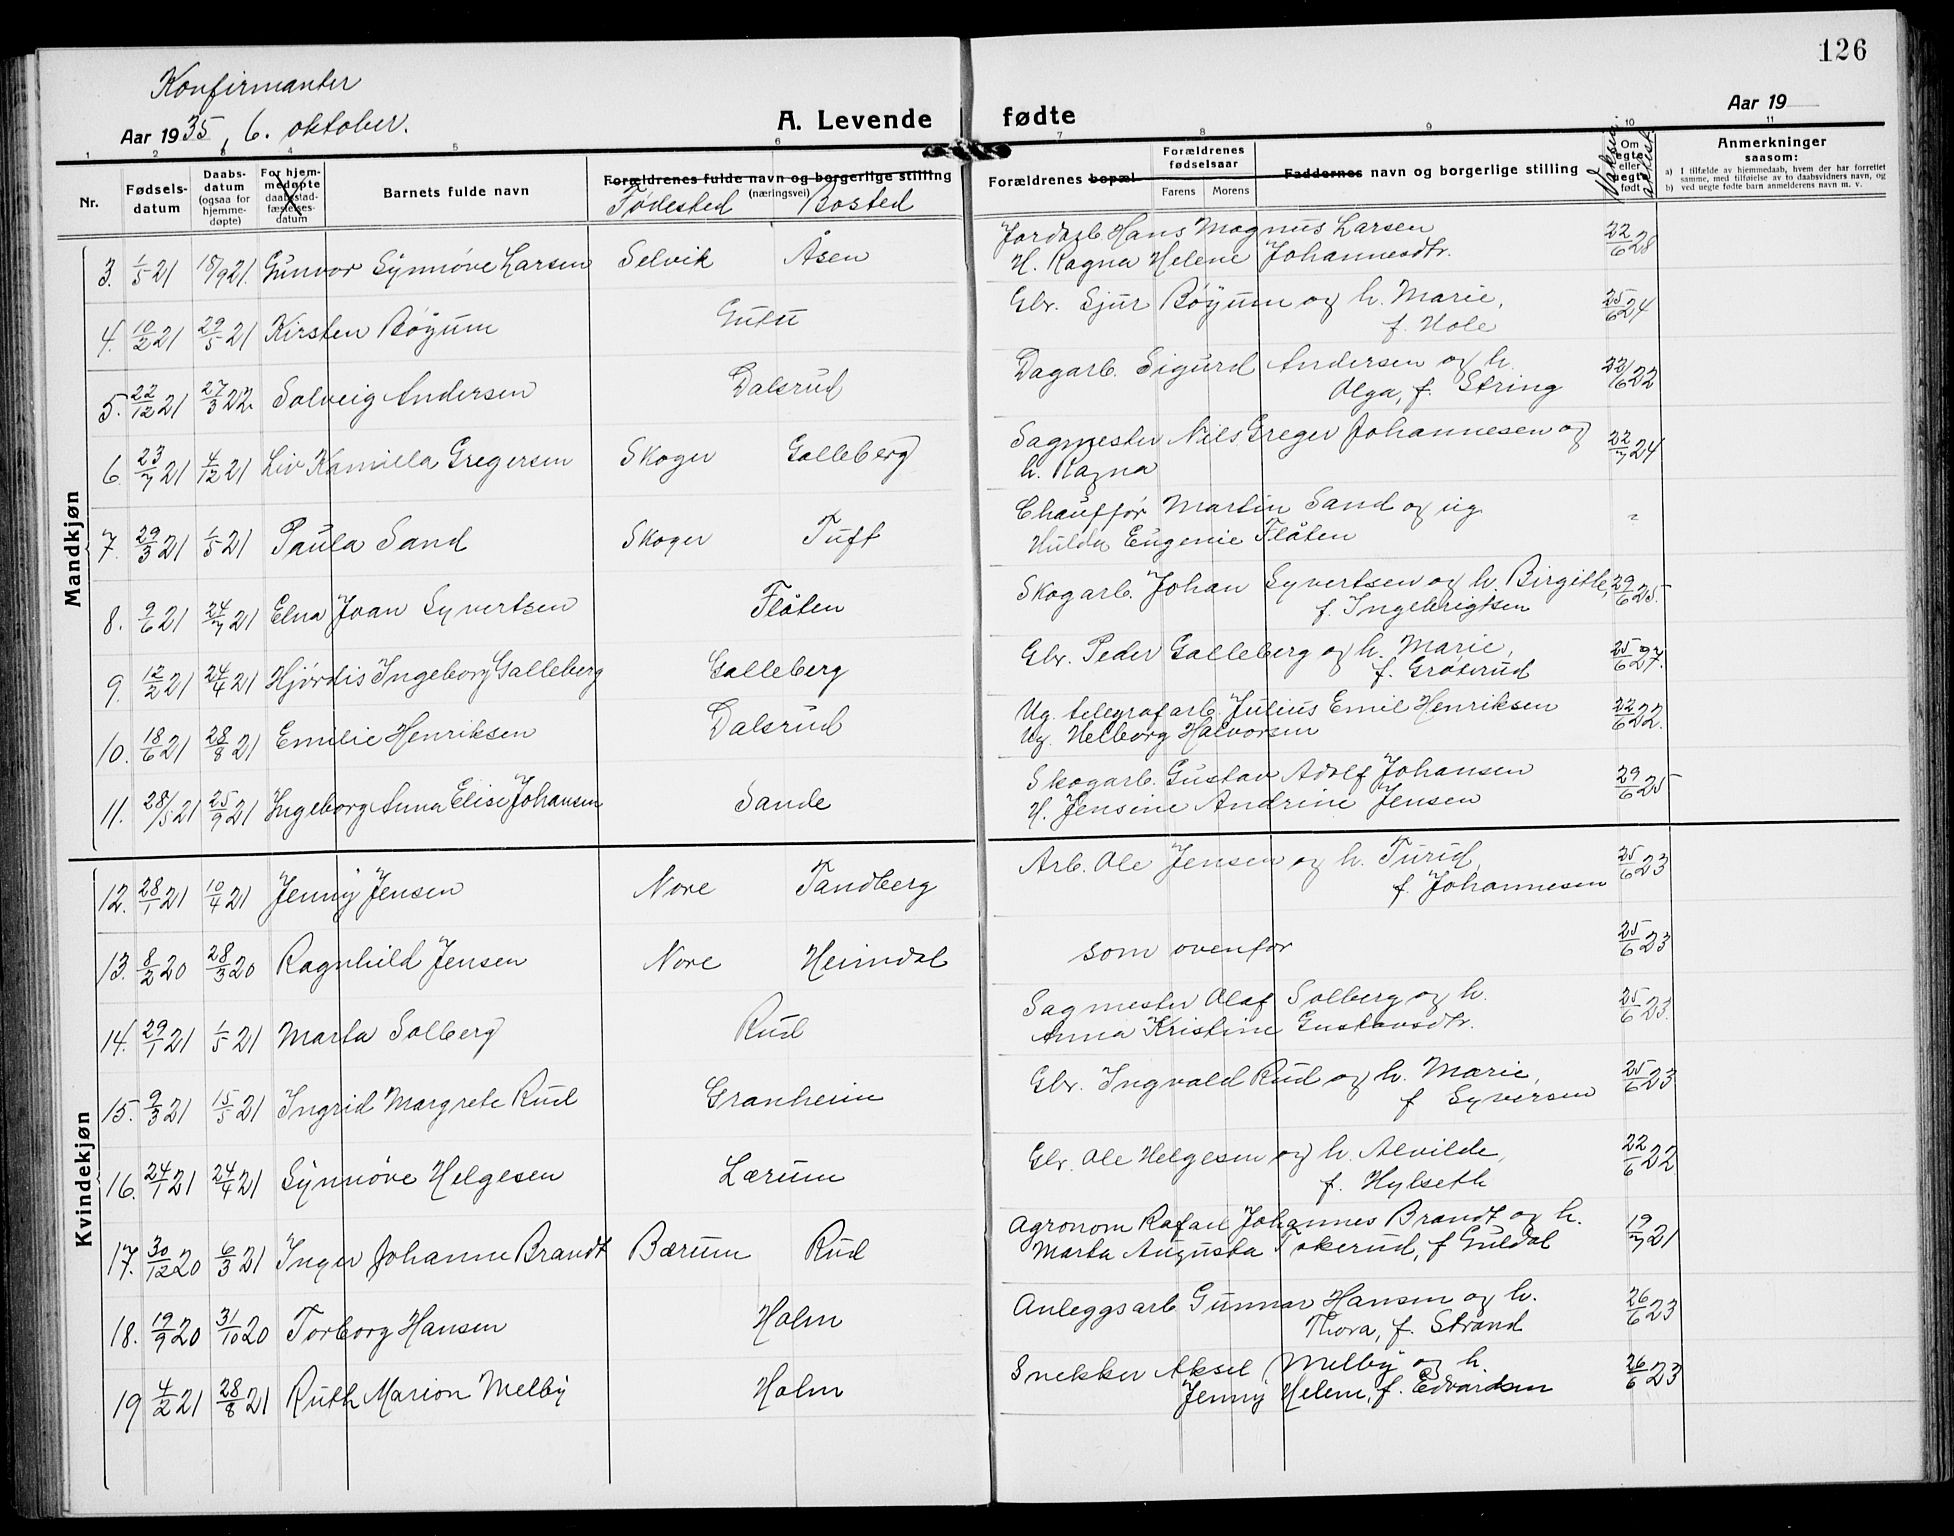 126
Konfirmanter
Aar 1935, 6. oktober.
A. Levende fødte
Aar 19
1 2 3 4 5 6 7 8 9 10 11
Nr.
Fødsels-datum
Daabs-datum (ogsaa for hjemme-døpte)
For hjem-medøpte daabsstad-fæstelses-datum
Barnets fulde navn
Forældrenes fulde navn og borgerlige stilling (næringsvei)
Fødested Bosted
Forældrenes bopæl
Forældrenes fødselsaar
Farens Morens
Faddernes navn og borgerlige stilling
Om egte eller uegte født
Anmerkninger saasom:
a) I tilfælde av hjemmedaab, hvem der har forrettet samme, med tilføielse av to daabsvidners navn, og
b) ved uegte fødte barn anmelderens navn m. v.
Mandkjøn
3. 1/5 21 18/9 21. Gunvor Synnøve Larsen Selvik Åsen Jordarb. Hans Magnus Larsen 22/6 28
H. Ragna Helene Johannesdtr.
4. 10/2 21 29/5 21 Kirsten Bøyum Gutu Gbr. Sjur Bøyum og h. Marie, 25/6 24
f. Hole
5. 22/12 21 27/3 22. Solveig Andersen Dalsrud Dagarb. Sigurd Andersen og h. 22/6 22
Olga, f. String
6. 23/7 21 4/12 21 Liv Kamilla Gregersen Skoger Galleberg Sagmester Nils Greger Johannesen og 22/7 24
h. Ragna
7. 29/3 21 1/5 21 Paula Sand Skoger Tuft Chauffør Martin Sand og ug.
Hulda Eugenie Flåten
8. 9/6 21 24/7 21 Elna Joan Syvertsen Flåten Skogarb. Johan Syvertsen og h. Birgitte, 29/6 25.
f. Ingebrigtsen
9. 12/2 21 24/4 21 Hjørdis Ingeborg Galleberg Galleberg Gbr. Peder Galleberg og h. Marie, 25/6 27.
f. Grøterud
10. 18/6 21 28/8 21 Emilie Henriksen Dalsrud Ug. telegrafarb. Julius Emil Henriksen 22/6 22.
Ug. Helborg Halvorsen
11. 28/5 21 25/9 21 Ingeborg Anna Elise Johansen Sande Skogarb. Gustav Adolf Johansen 29/6 25
H. Jensine Andrine Jensen
Kvindekjøn
12. 28/1 21 10/4 21 Jenny Jensen Nore Tandberg Arb. Ole Jensen og h. Turid, 25/6 23
f. Johannesen
13. 8/2 20 28/3 20 Ragnhild Jensen Nore Heimdal som ovenfor 25/6 23
14. 29/1 21 1/5 21 Marta Solberg Rud Sagmester Olaf Solberg og h. 25/6 23.
Anna Kristine Gustavsdtr.
15. 9/3 21 15/5 21 Ingrid Margrete Rud Granheim Gbr. Ingvald Rud og h. Marie, 25/6 23
f Syversen
16. 24/1 21 24/4 21 Synnøve Helgesen Lærum Gbr. Ole Helgesen og h. Alvilde, 22/6 22
f. Hylseth
17. 30/12 20 6/3 21 Inger Johanne Brandt Bærum Rud Agronom Rafael Johannes Brandt og h. 19/7 21
Marta Augusta Tokerud, f Guldal
18. 19/9 20 31/10 20 Torborg Hansen Holm Anleggsarb Gunnar Hansen og h. 26/6 23
Thora, f. Strand
19 4/2 21 28/8 21 Ruth Marion Melby Holm Snekker Aksel Melby og h. 26/6 23
Jenny Helene, f. Edvardsen